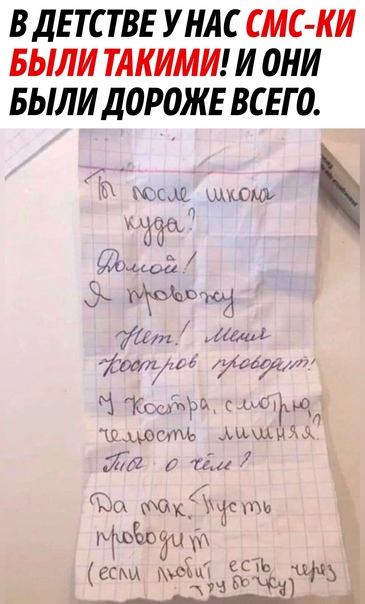 В ДЕТСТВЕ У НАС СМС-КИ
БЫЛИ ТАКИМИ! И ОНИ
БЫЛИ ДОРОЖЕ ВСЕГО.
Ты после школы
куда?
Домой!
Я провожу
Нет! Меня
Костров проводит!
У Костра, смотрю,
челюсть лишняя?
Ты о чём?
Да так. Пусть
проводит
(если любит есть через
трубочку)